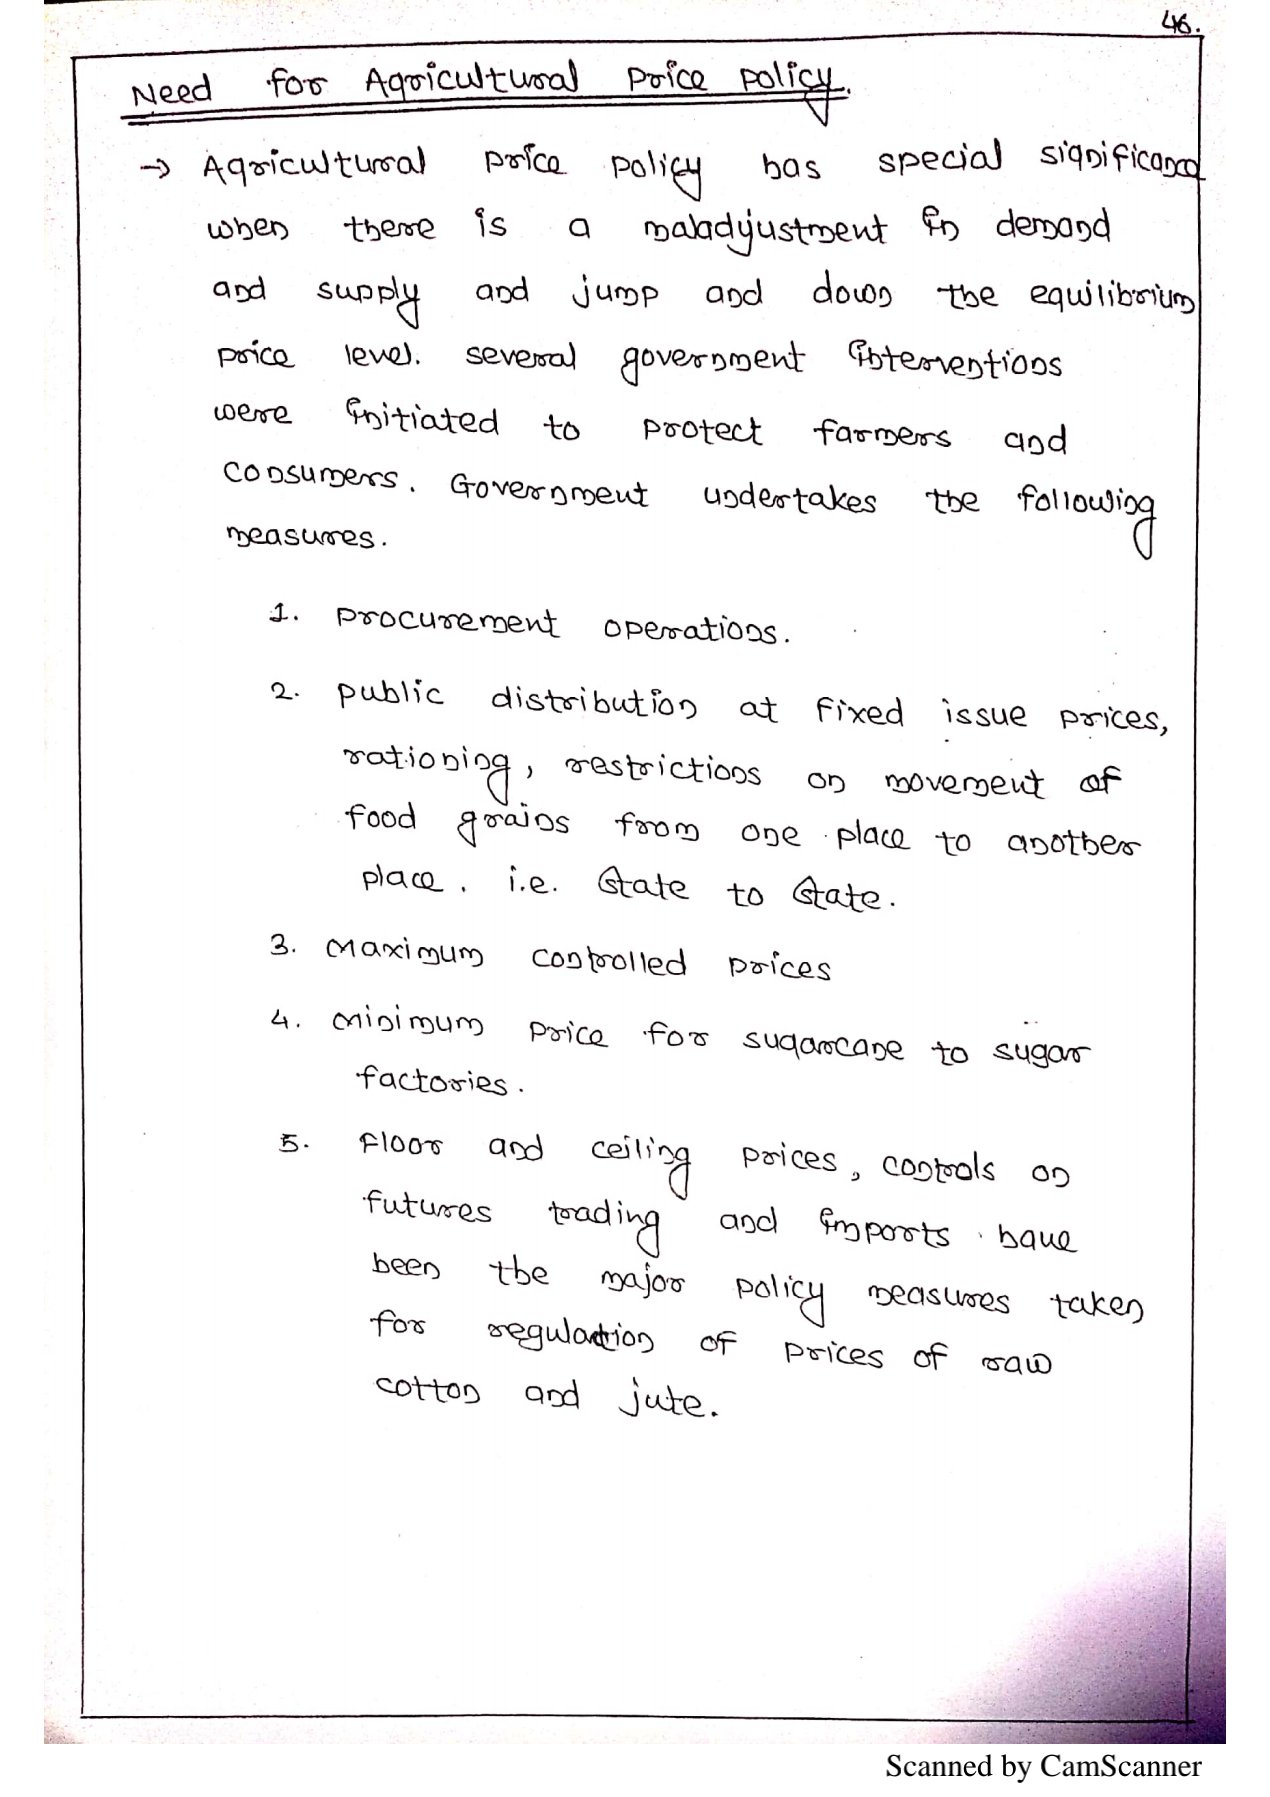 46.
Need for Agricultural Price policy.
→ Agricultural price policy has special significance
when there is a maladjustment in demand
and supply and jump and down the equilibrium
price level. several government interventions
were initiated to protect farmers and
consumers. Government undertakes the following
measures.
1. procurement operations.
2. public distribution at fixed issue prices,
rationing, restrictions on movement of
food grains from one place to another
place. i.e. State to State.
3. Maximum controlled prices
4. Minimum price for sugarcane to sugar
factories.
5. Floor and ceiling prices, controls on
futures trading and imports have
been the major policy measures taken
for regulation of prices of raw
cotton and jute.
Scanned by CamScanner